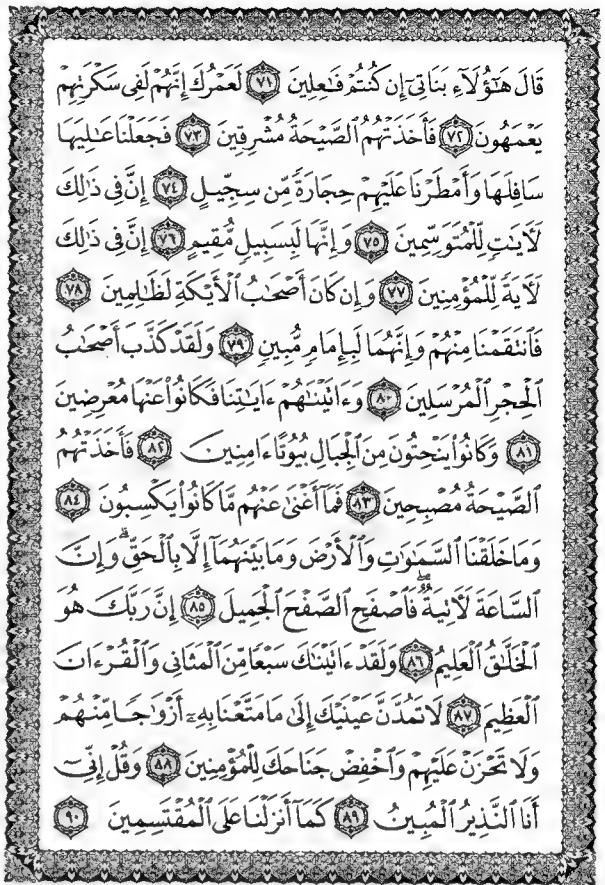 قَالَ هَٰٓؤُلَآءِ بَنَاتِىٓ إِن كُنتُمْ فَٰعِلِينَ ٧١ لَعَمْرُكَ إِنَّهُمْ لَفِى سَكْرَتِهِمْ
يَعْمَهُونَ ٧٢ فَأَخَذَتْهُمُ ٱلصَّيْحَةُ مُشْرِقِينَ ٧٣ فَجَعَلْنَا عَٰلِيَهَا
سَافِلَهَا وَأَمْطَرْنَا عَلَيْهِمْ حِجَارَةً مِّن سِجِّيلٍ ٧٤ إِنَّ فِى ذَٰلِكَ
لَأٓيَٰتٍ لِّلْمُتَوَسِّمِينَ ٧٥ وَإِنَّهَا لَبِسَبِيلٍ مُّقِيمٍ ٧٦ إِنَّ فِى ذَٰلِكَ
لَأٓيَةً لِّلْمُؤْمِنِينَ ٧٧ وَإِن كَانَ أَصْحَٰبُ ٱلْأَيْكَةِ لَظَٰلِمِينَ ٧٨
فَٱنتَقَمْنَا مِنْهُمْ وَإِنَّهُمَا لَبِإِمَامٍ مُّبِينٍ ٧٩ وَلَقَدْ كَذَّبَ أَصْحَٰبُ
ٱلْحِجْرِ ٱلْمُرْسَلِينَ ٨٠ وَءَاتَيْنَٰهُمْ ءَايَٰتِنَا فَكَانُوا۟ عَنْهَا مُعْرِضِينَ
٨١ وَكَانُوا۟ يَنْحِتُونَ مِنَ ٱلْجِبَالِ بُيُوتًا ءَامِنِينَ ٨٢ فَأَخَذَتْهُمُ
ٱلصَّيْحَةُ مُصْبِحِينَ ٨٣ فَمَآ أَغْنَىٰ عَنْهُم مَّا كَانُوا۟ يَكْسِبُونَ ٨٤
وَمَا خَلَقْنَا ٱلسَّمَٰوَٰتِ وَٱلْأَرْضَ وَمَا بَيْنَهُمَآ إِلَّا بِٱلْحَقِّ ۗ وَإِنَّ
ٱلسَّاعَةَ لَأٓتِيَةٌ ۖ فَٱصْفَحِ ٱلصَّفْحَ ٱلْجَمِيلَ ٨٥ إِنَّ رَبَّكَ هُوَ
ٱلْخَلَّٰقُ ٱلْعَلِيمُ ٨٦ وَلَقَدْ ءَاتَيْنَٰكَ سَبْعًا مِّنَ ٱلْمَثَانِى وَٱلْقُرْءَانَ
ٱلْعَظِيمَ ٨٧ لَا تَمُدَّنَّ عَيْنَيْكَ إِلَىٰ مَا مَتَّعْنَا بِهِۦٓ أَزْوَٰجًا مِّنْهُمْ
وَلَا تَحْزَنْ عَلَيْهِمْ وَٱخْفِضْ جَنَاحَكَ لِلْمُؤْمِنِينَ ٨٨ وَقُلْ إِنِّىٓ
أَنَا ٱلنَّذِيرُ ٱلْمُبِينُ ٨٩ كَمَآ أَنزَلْنَا عَلَى ٱلْمُقْتَسِمِينَ ٩٠